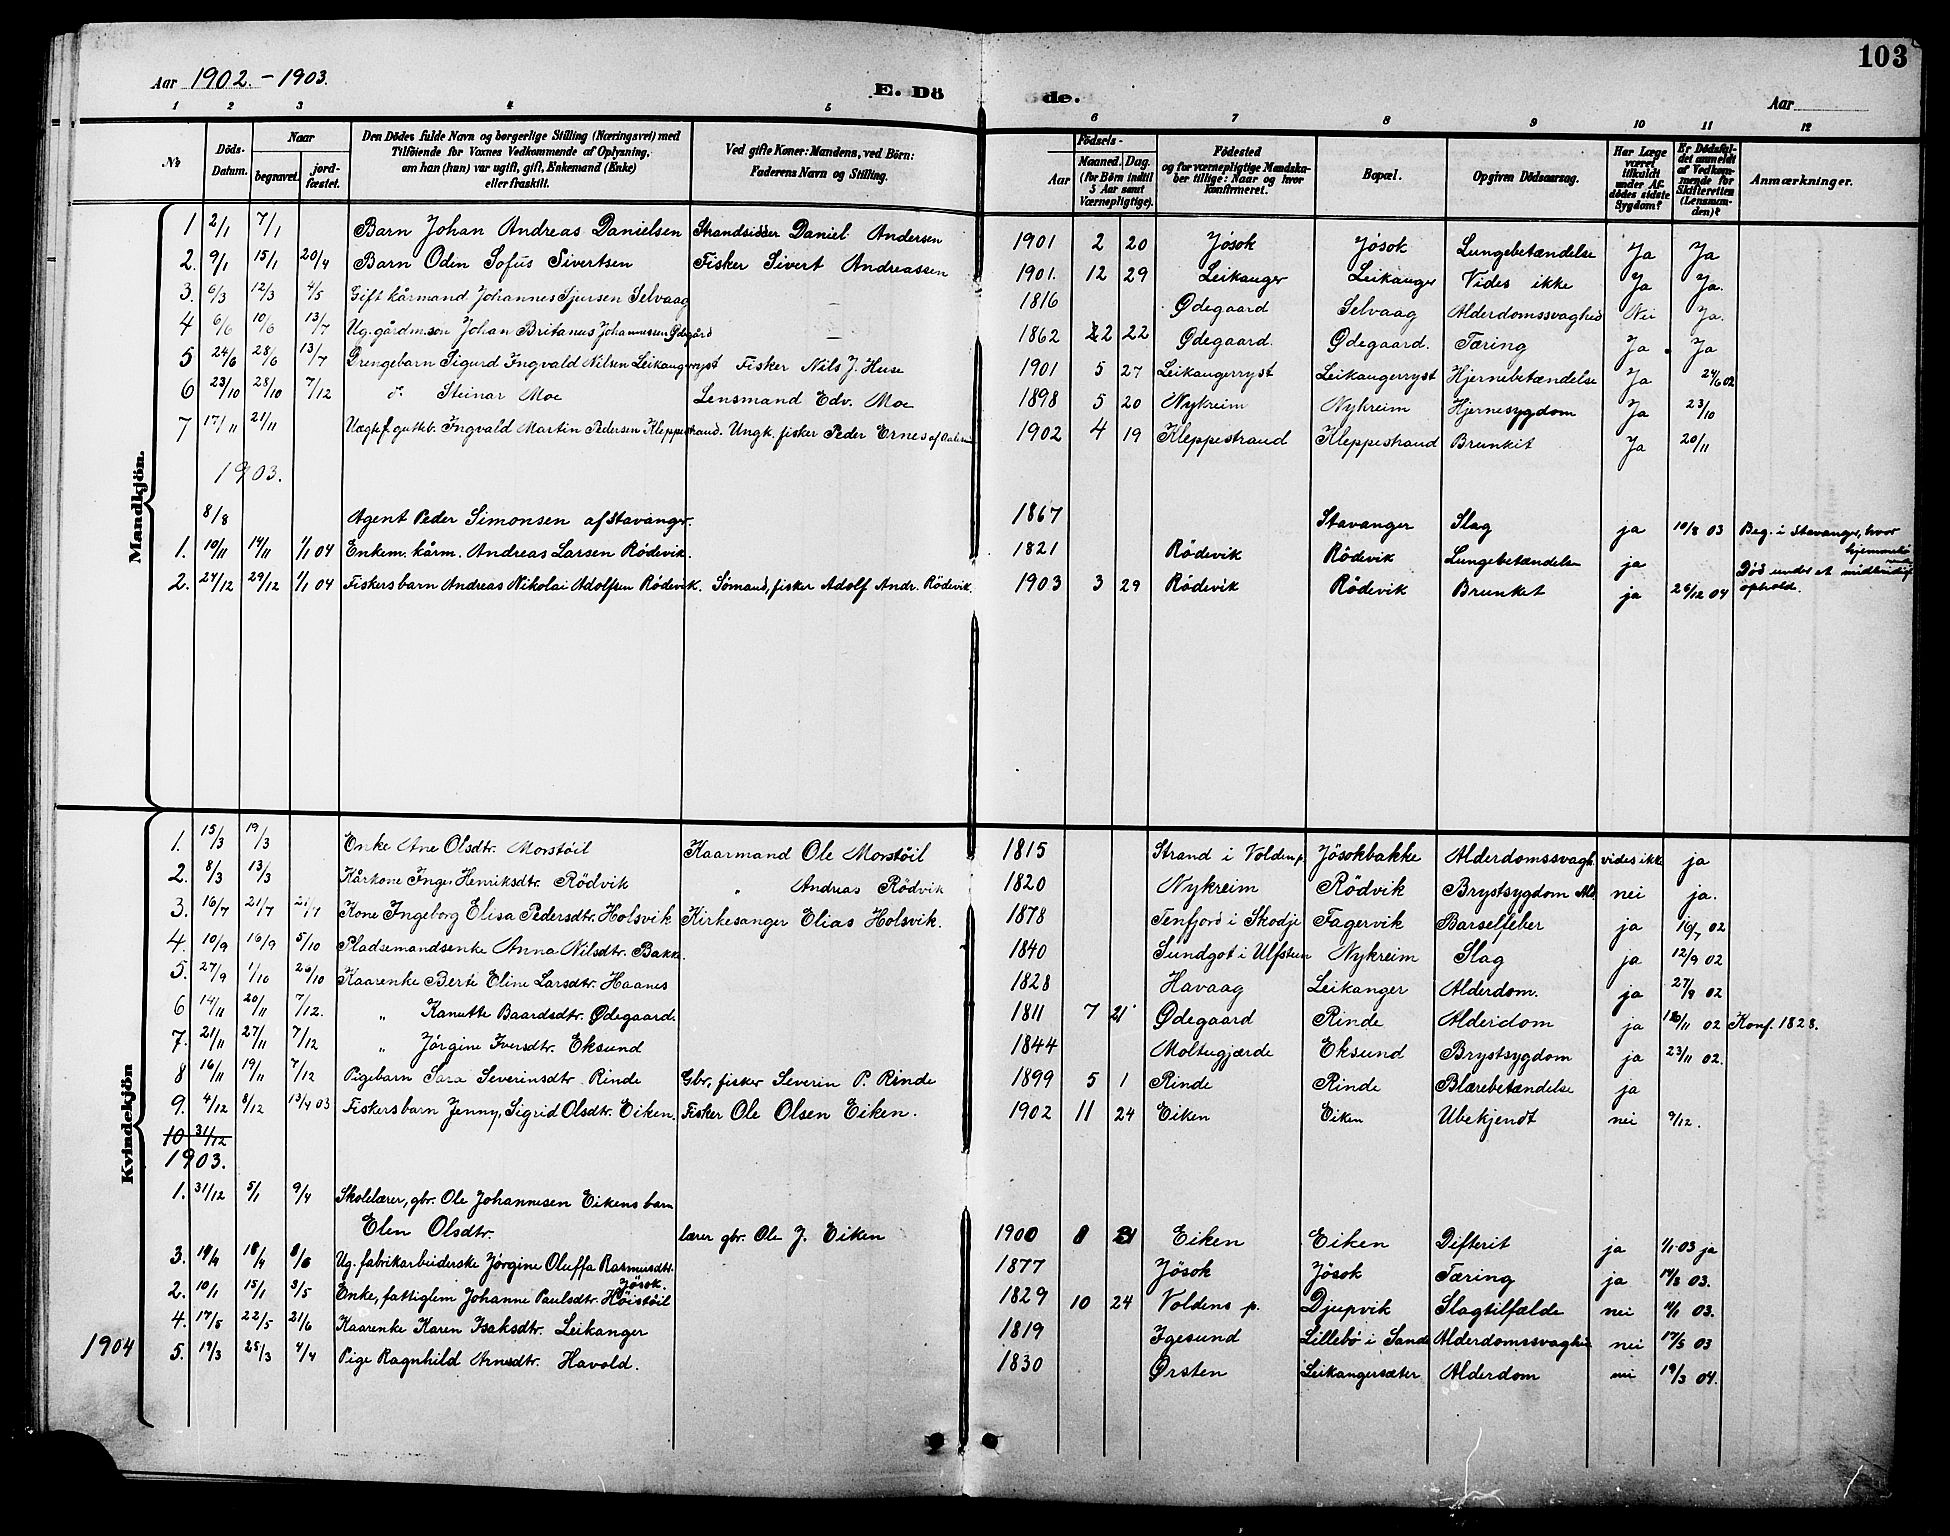 103
Aar 1902. - 1903.
E. Döde.
Aar
1 2 3 4 5 6 7 8 9 10 11 12
No
Döds-Datum.
Naar
begravet.
jord-fæstet.
Den Dödes fulde Navn og borgerlige Stilling (Næringsvei) med Tilföiende for Voxnes Vedkommende af Oplysning, om han (hun) var ugift, gift, Enkemand (Enke) eller fraskilt.
Ved gifte Koner: Mandens, ved Börn: Faderens Navn og Stilling.
Födsels-
Aar
Maaned. Dag.
(for Börn indtil 5 Aar samt Værnepligtige).
Födested og for værnepligtige Mandskaber tillige: Naar og hvor konfirmeret.
Bopæl.
Opgiven Dödsaarsag.
Har Læge været tilkaldt under Afdödes sidste Sygdom?
Er Dödsfaldet anmeldt af Vedkommende for Skifteretten (Lensmanden)?
Anmærkninger.
Mandkjön.
1 2/1 7/1 Barn Johan Andreas Danielsen Strandsidder Daniel Andersen 1901 2 20 Jösok Jösok Lungebetændelse Ja Ja
2. 9/1 15/1 20/4 Barn Oden Sofus Sivertsen Fisker Sivert Andreassen 1901. 12 29 Leikanger Leikanger Vides ikke Ja Ja.
3. 6/3 12/3 4/5 Gift kårmand Johannes Sjursen Selvaag 1816 Ødegaard Selvaag Alderdomssvaghed Nei Ja.
4 6/6 10/6 13/7 Ug. gårdm.sön Johan Britanus Johannessen Ødegård 1862 22 22 Ødegaard. Ødegaard. Tæring Ja. Ja
5 24/6 28/6 13/7 Drengebarn Sigurd Ingvald Nilsen Leikangerryst Fisker Nils J. Huse 1901 5 27 Leikangerryst Leikangerryst Hjernebetændelse Ja 24/6 02
6 23/10 28/10 7/12 do Steinar Moe Lensmand Edv. Moe 1898 5 20 Nykreim Nykreim Hjernesygdom Ja 23/10
7 17/11 21/11 Uægtef. gutteb. Ingvald Martin Pedersen Kleppestrand. Ungk. fisker Peder Ernes af 1902 4 19 Kleppestrand Kleppestrand Brunkit Ja 20/11
1903.
8/8 Agent Peder Simonsen af Stavanger. 1867 Stavanger Slag ja 10/8 03 Beg. i Stavanger, hvor hjemmehö
1. 10/11 14/11 1/1 04 Enkem. kårm. Andreas Larsen Rödevik. 1821 Rödevik Rödevik Lungebetændelse ja Död under et midlertidigt ophold.
2. 24/12 29/12 1/1 04 Fiskersbarn Andreas Nikolai Adolfsen Rödevik. Sömand, fisker Adolf Andr. Rödevik. 1903 3 29 Rödevik Rödevik Brunket ja 26/12 04
Kvindekjön
1. 15/3 19/3 Enke Ane Olsdtr. Morstöil Kaarmand Ole Morstöil 1815 Strand i Volden p. Jösokbakke Alderdomssvagh. vides ikke ja
2. 8/3 13/3 Kårkone Inger Henriksdtr. Rödvik " Andreas Rödvik 1820 Nykreim Rödvik Brystsygdom nei ja.
3. 16/7 21/7 21/7 Kone Ingeborg Elisa Pedersdtr. Holsvik Kirkesanger Elias Holsvik. 1878 Tenfjord i Skodje Fagervik Barselfeber ja 16/7 02
4. 10/9 16/9 5/10 Pladsemandsenke Anna Nilsdtr. Bakke. 1840 Sundgot i Ulfsten Nykreim Slag ja 12/9 02
5. 27/9 1/10 26/10 Kaarenke Berte Eline Larsdtr. Haanes 1828 Havaag Leikanger Alderdom. ja 27/9 02
6 14/11 20/11 7/12. " Kanutte Baardsdtr. Ødegaard. 1811 7 21 Ødegaard Rinde Alderdom ja 18/11 02 Konf. 1828.
7. 21/11 27/11 7/12 " Jörgine Iversdtr. Eksund 1844 Moltugjærde Eksund Brystsygdom ja 23/11 02.
8 16/11 19/11 7/12 Pigebarn Sara Severinsdtr. Rinde Gbr, fisker Severin P. Rinde 1899 5 1 Rinde Rinde Blærebetændelse ja
9. 4/12 8/12 13/4 03 Fiskersbarn Jenny, Sigrid Olsdtr. Eiken. Fisker Ole Olsen Eiken. 1902 11 24 Eiken Eiken Ubekjendt nei 9/12.
10 31/12
1903.
1. 31/12 5/1 9/4 Skolelærer, gbr. Ole Johannesen Eikens barn
Elen Olsdtr. lærer gbr. Ole J. Eiken 1900 8 31 Eiken Eiken Difterit ja 1/1 03 ja
3. 18/4 8/6 Ug. fabrikarbeiderske Jörgine Oluffa Rasmusdtr. Jösok. 1877 Jösok Jösok Tæring ja 03.
2. 10/1 15/1 3/5 Enke, fattiglem Johanne Paulsdtr. Höistöil 1829 10 24 Voldens p. Djupvik Slagtilfælde nei 03.
4. 17/5 22/5 21/6 Kaarenke Karen Isaksdtr. Leikanger 1819 Igesund Lillebö i Sande Alderdomssvaghed nei 17/5 03
1904 5. 19/3 25/3 4/4 Pige Ragnhild Arnesdtr. Havold. 1830 Ørsten Leikangersæter Alderdom nei 19/3 04.